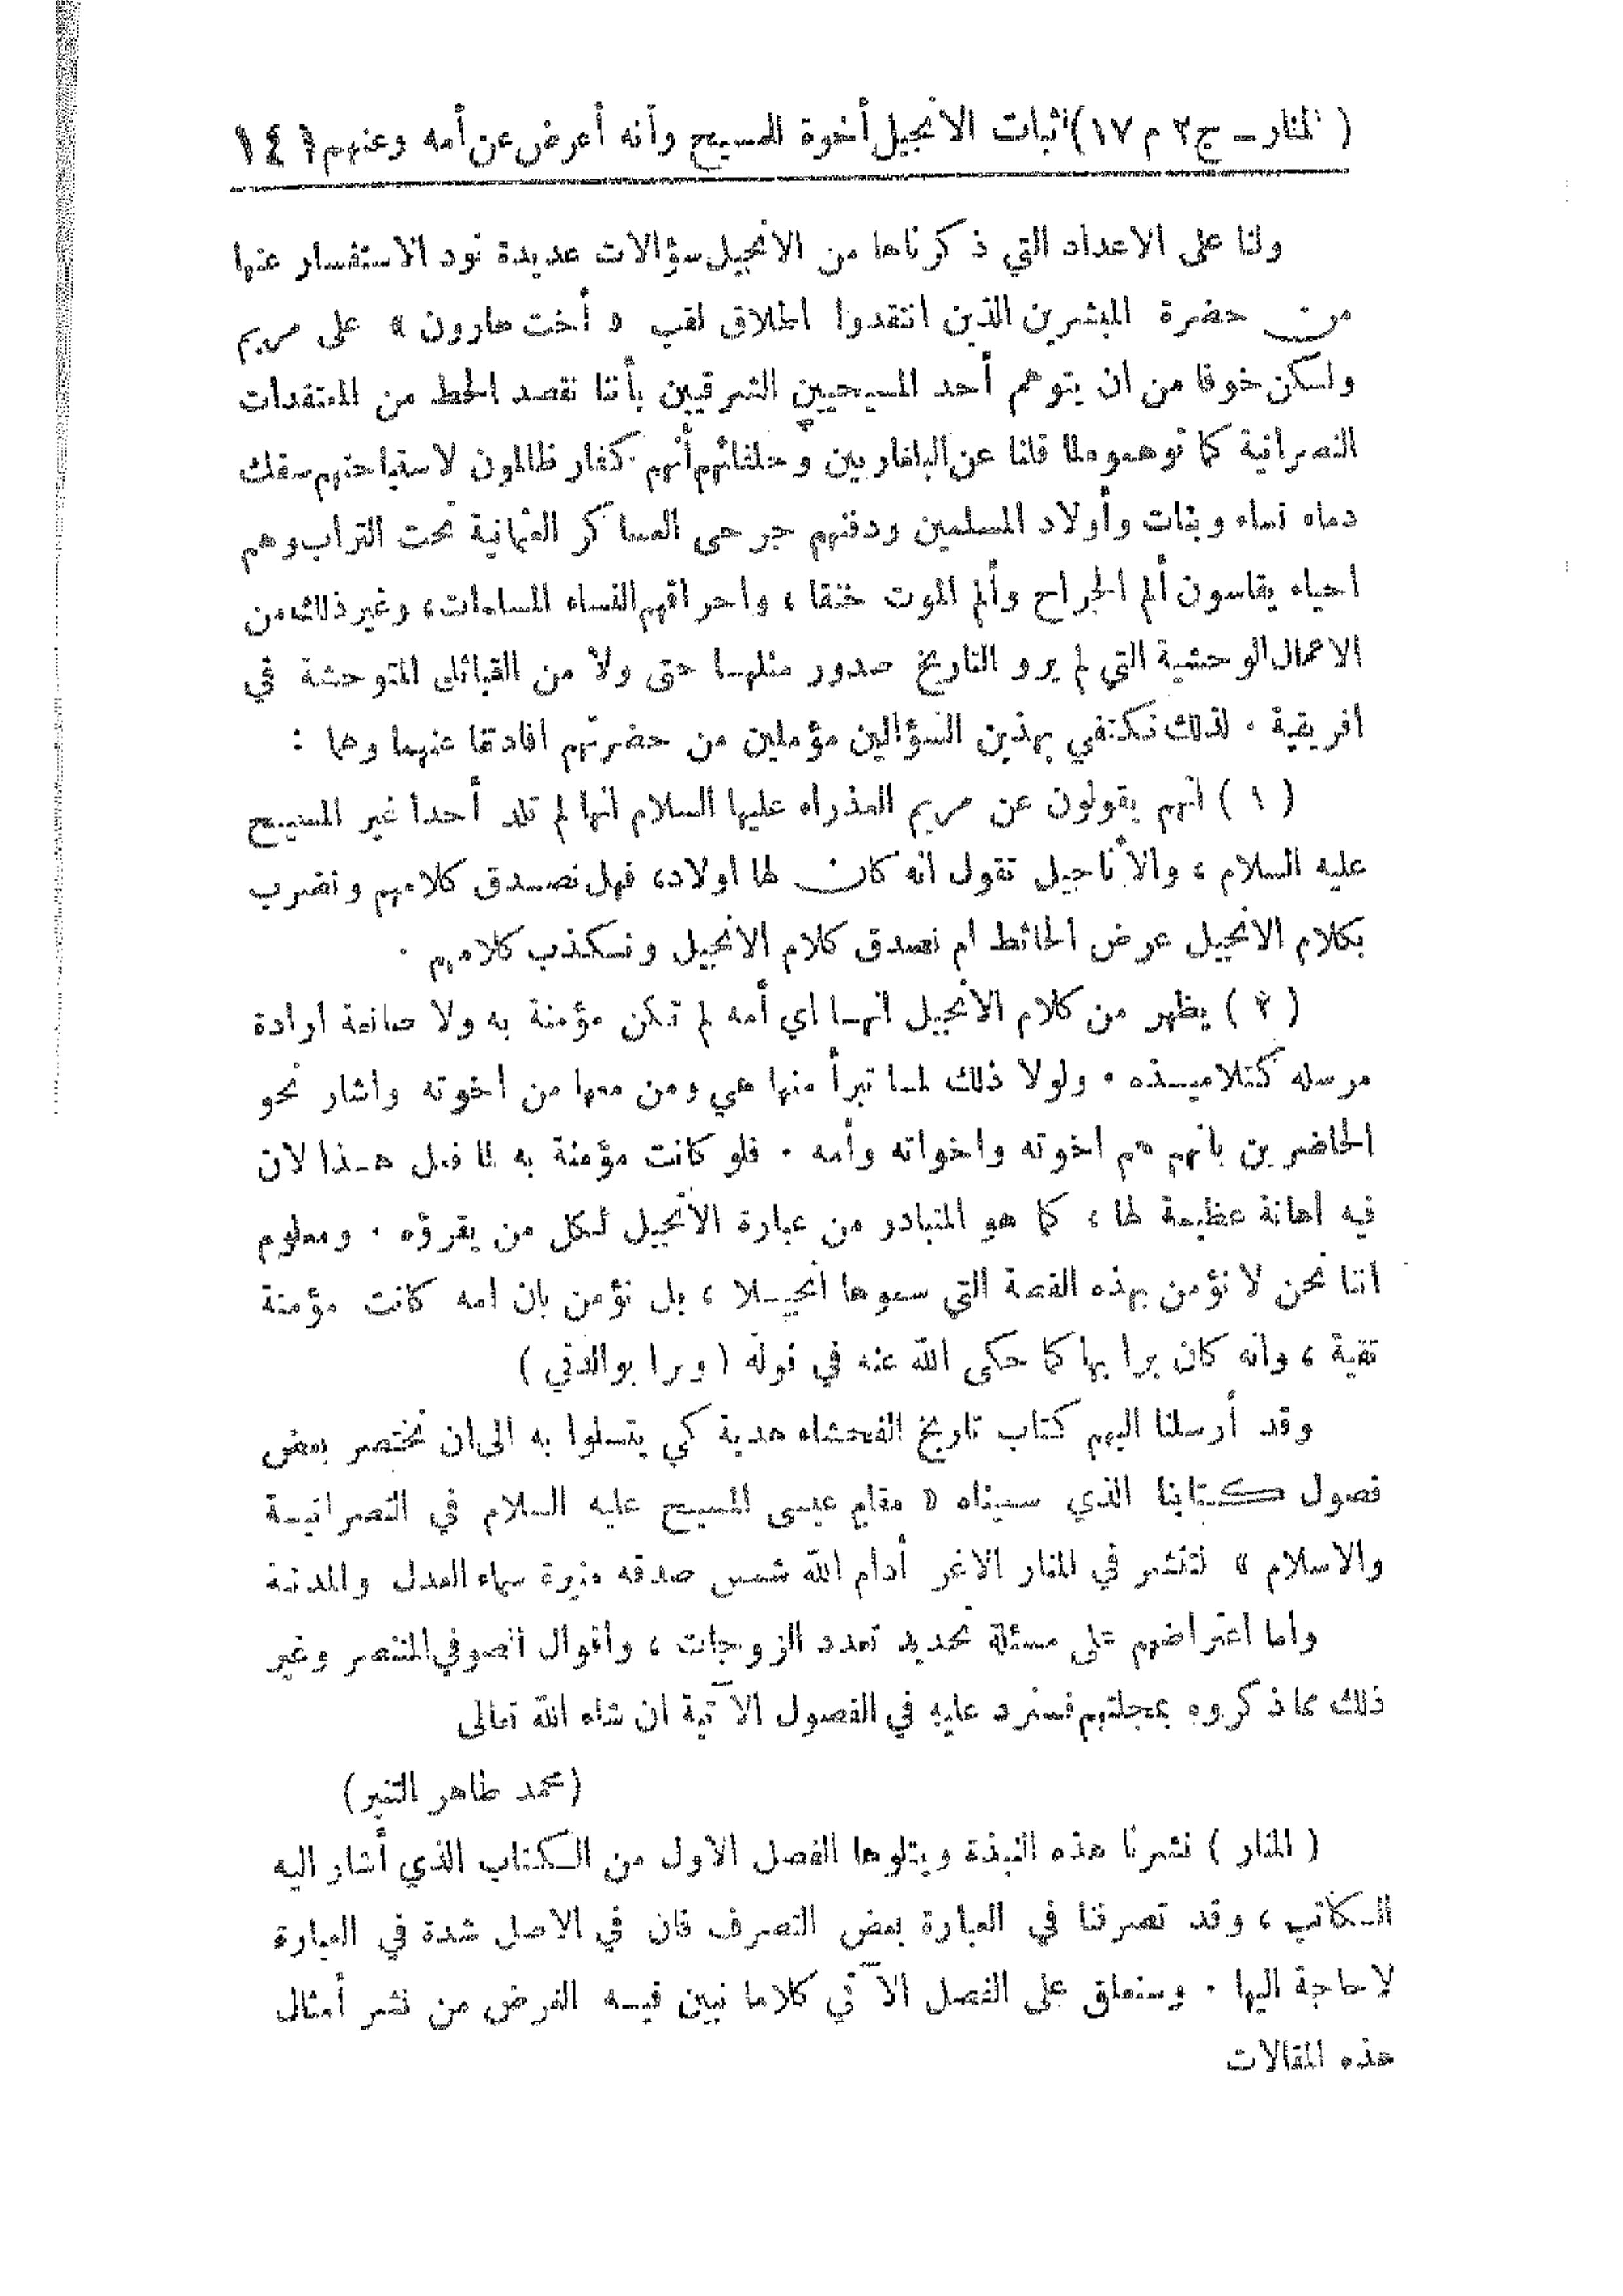 ( المنار ـ ج ٢ م ١٧ ) اثبات الانجيل أخوة للمسيح وأنه أعرض عن أمه وعنهم ١٤٦
ولنا على الاعداد التي ذكرناها من الانجيل سؤالات عديدة نود الاستفسار عنها
من حضرة المبشرين الذين انتقدوا اطلاق لقب « أخت هارون » على مريم
ولكن خوفا من ان يتوهم أحد المسيحيين الشرقيين بأننا نقصد الحط من المعتقدات
النصرانية كما توهموه لما قلنا عن البلغاريين وحلفائهم أنهم كفار ظالمون لاستباحتهم سفك
دماء نساء وبنات وأولاد المسلمين ودفنهم جرحى العساكر العثمانية تحت التراب وهم
احياء يقاسون ألم الجراح وألم الموت خنقا ، واحراقهم النساء المسلمات ، وغير ذلك من
الاعمال الوحشية التي لم يرو التاريخ صدور مثلهـا حتى ولا من القبائل المتوحشة في
افريقية . لذلك نكتفي بهذين السؤالين مؤملين من حضرتهم افادتنا عنهما وهما :
( ١ ) انهم يقولون عن مريم العذراء عليها السلام انها لم تلد أحدا غير المسيح
عليه السلام ، والأناجيل تقول انه كان لها اولاد ، فهل نصـدق كلامهم ونضرب
بكلام الانجيل عرض الحائط ام نصدق كلام الانجيل ونكذب كلامهم .
( ٢ ) يظهر من كلام الانجيل انهـا اي أمه لم تكن مؤمنة به ولا صانعة ارادة
مرسله كتلاميـذه . ولولا ذلك لمـا تبرأ منها هي ومن معها من اخوته واشار نحو
الحاضرين بانهم هم اخوته واخواته وأمه . فلو كانت مؤمنة به لما فعل هـذا لان
فيه اهانة عظيمة لها ، كما هو المتبادر من عبارة الانجيل لكل من يقرؤه . ومعلوم
اننا نحن لا نؤمن بهذه القصة التي سموها انجيـلا ، بل نؤمن بان امه كانت مؤمنة
تقية ، وانه كان برا بها كما حكى الله عنه في قوله ( وبرا بوالدتي )
وقد أرسلنا اليهم كتاب تاريخ الفحشاء هدية كي يتسلوا به الى ان نختصر بعض
فصول كتابنا الذي سميناه « مقام عيسى المسيح عليه السلام في النصرانيـة
والاسلام » لتنشر في المنار الاغر أدام الله شمس صدقه منيرة سماء العدل والمدنية
واما اعتراضهم على مسئلة تحديد تعدد الزوجات ، واقوال الصوفي المتنصر وغير
ذلك مما ذكروه بمجلتهم فسنرد عليه في الفصول الآتية ان شاء الله تعالى
(محمد طاهر التنير)
( المنار ) نشرنا هذه النبذة ويتلوها الفصل الاول من الكتاب الذي أشار اليه
الكاتب ، وقد تصرفنا في العبارة بعض التصرف فان في الاصل شدة في العبارة
لا حاجة اليها . وسنعلق على الفصل الآتي كلاما نبين فيـه الغرض من نشر أمثال
هذه المقالات